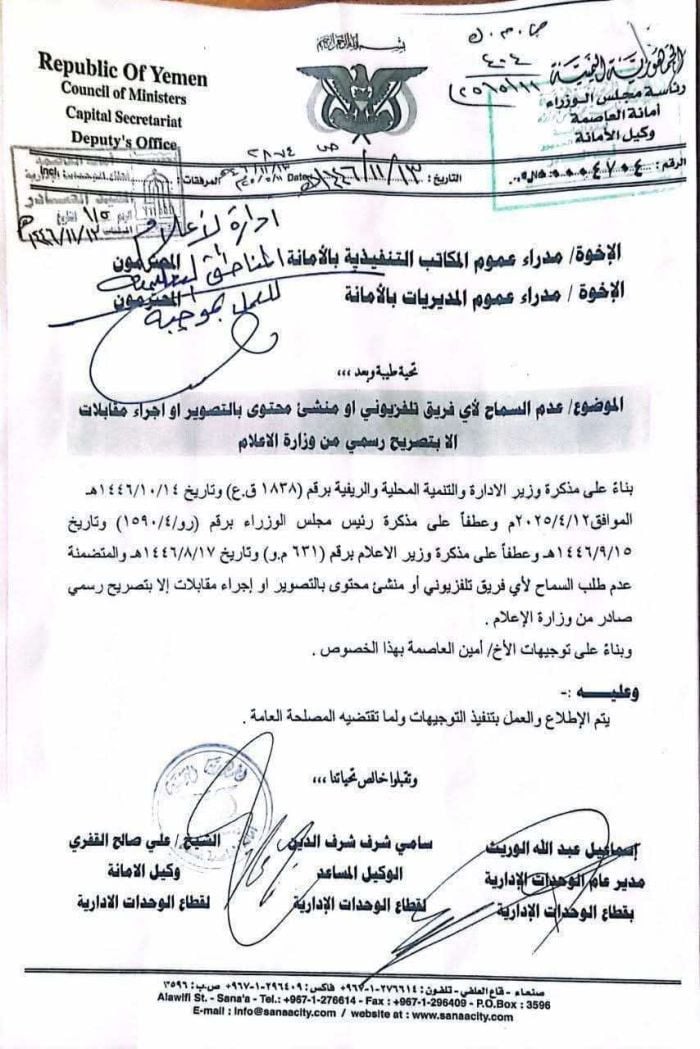 بسم الله الرحمن الرحيم
Republic Of Yemen
Council of Ministers
Capital Secretariat
Deputy's Office
الجمهورية اليمنية
رئاسة مجلس الوزراء
أمانة العاصمة
وكيل الأمانة
ص.م.ك
٤٠٤
الرقم : ٠٠٠٤٧٠٤
التاريخ : ١٤٤٦/١١/١٣
Date
المرفقات :
ص ٢٨٧٤
١٤٤٦/١١/١٣هـ
ادارة الإعلام
المناطق التعليمية
للعمل بموجبه
الإخوة/ مدراء عموم المكاتب التنفيذية بالأمانة المحترمون
الإخوة / مدراء عموم المديريات بالأمانة المحترمون
تحية طيبة وبعد ،،،
الموضوع/ عدم السماح لأي فريق تلفزيوني او منشئ محتوى بالتصوير او اجراء مقابلات
الا بتصريح رسمي من وزارة الاعلام
بناءً على مذكرة وزير الادارة والتنمية المحلية والريفية برقم (١٨٣٨ ق.ع) وتاريخ ١٤٤٦/١٠/١٤هـ
الموافق٢٠٢٥/٤/١٢م وعطفاً على مذكرة رئيس مجلس الوزراء برقم (رو/١٥٩٠/٤) وتاريخ
١٤٤٦/٩/١٥هـ وعطفاً على مذكرة وزير الاعلام برقم (٦٣١ م.و) وتاريخ ١٤٤٦/٨/١٧هـ والمتضمنة
عدم طلب السماح لأي فريق تلفزيوني أو منشئ محتوى بالتصوير او إجراء مقابلات إلا بتصريح رسمي
صادر من وزارة الإعلام .
وبناءً على توجيهات الأخ/ أمين العاصمة بهذا الخصوص .
وعليـــه :-
يتم الإطلاع والعمل بتنفيذ التوجيهات ولما تقتضيه المصلحة العامة .
وتقبلوا خالص تحياتنا ،،،
إسماعيل عبد الله الوريث
مدير عام الوحدات الإدارية
بقطاع الوحدات الإدارية
سامي شرف شرف الدين
الوكيل المساعد
لقطاع الوحدات الإدارية
الشيخ / علي صالح القفري
وكيل الامانة
لقطاع الوحدات الادارية
صنعاء - قاع العلفي - تلفون: ٢٧٦٦١٤-١-٩٦٧+ فاكس: ٢٩٦٤٠٩-١-٩٦٧+ ص.ب: ٣٥٩٦
Alawifi St. - Sana'a - Tel.: +967-1-276614 - Fax : +967-1-296409 - P.O.Box : 3596
E-mail : Info@sanaacity.com / website at : www.sanaacity.com